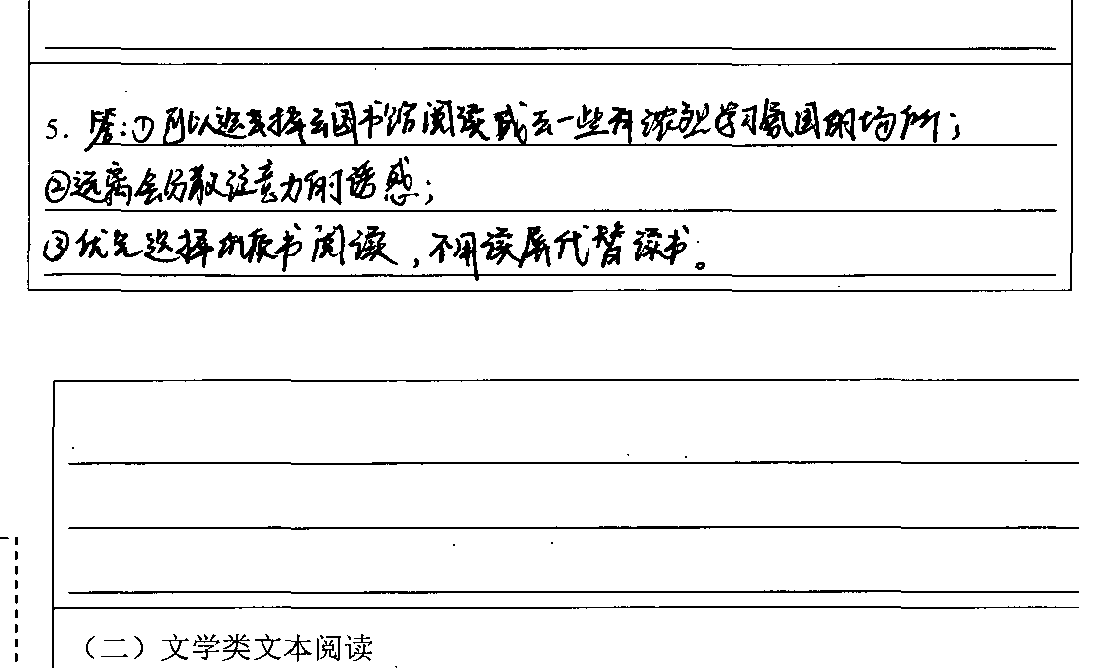 5. 答:①可以选择去图书馆阅读或去一些有浓烈学习氛围的场所;
②远离会分散注意力的诱惑;
③优先选择纸质书阅读,不用读屏代替读书。
(二)文学类文本阅读